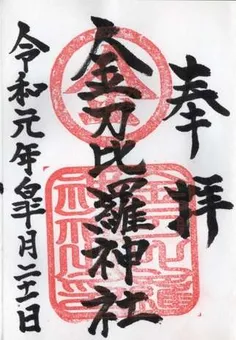 奉拝
金刀比羅神社
令和元年 月二十一日